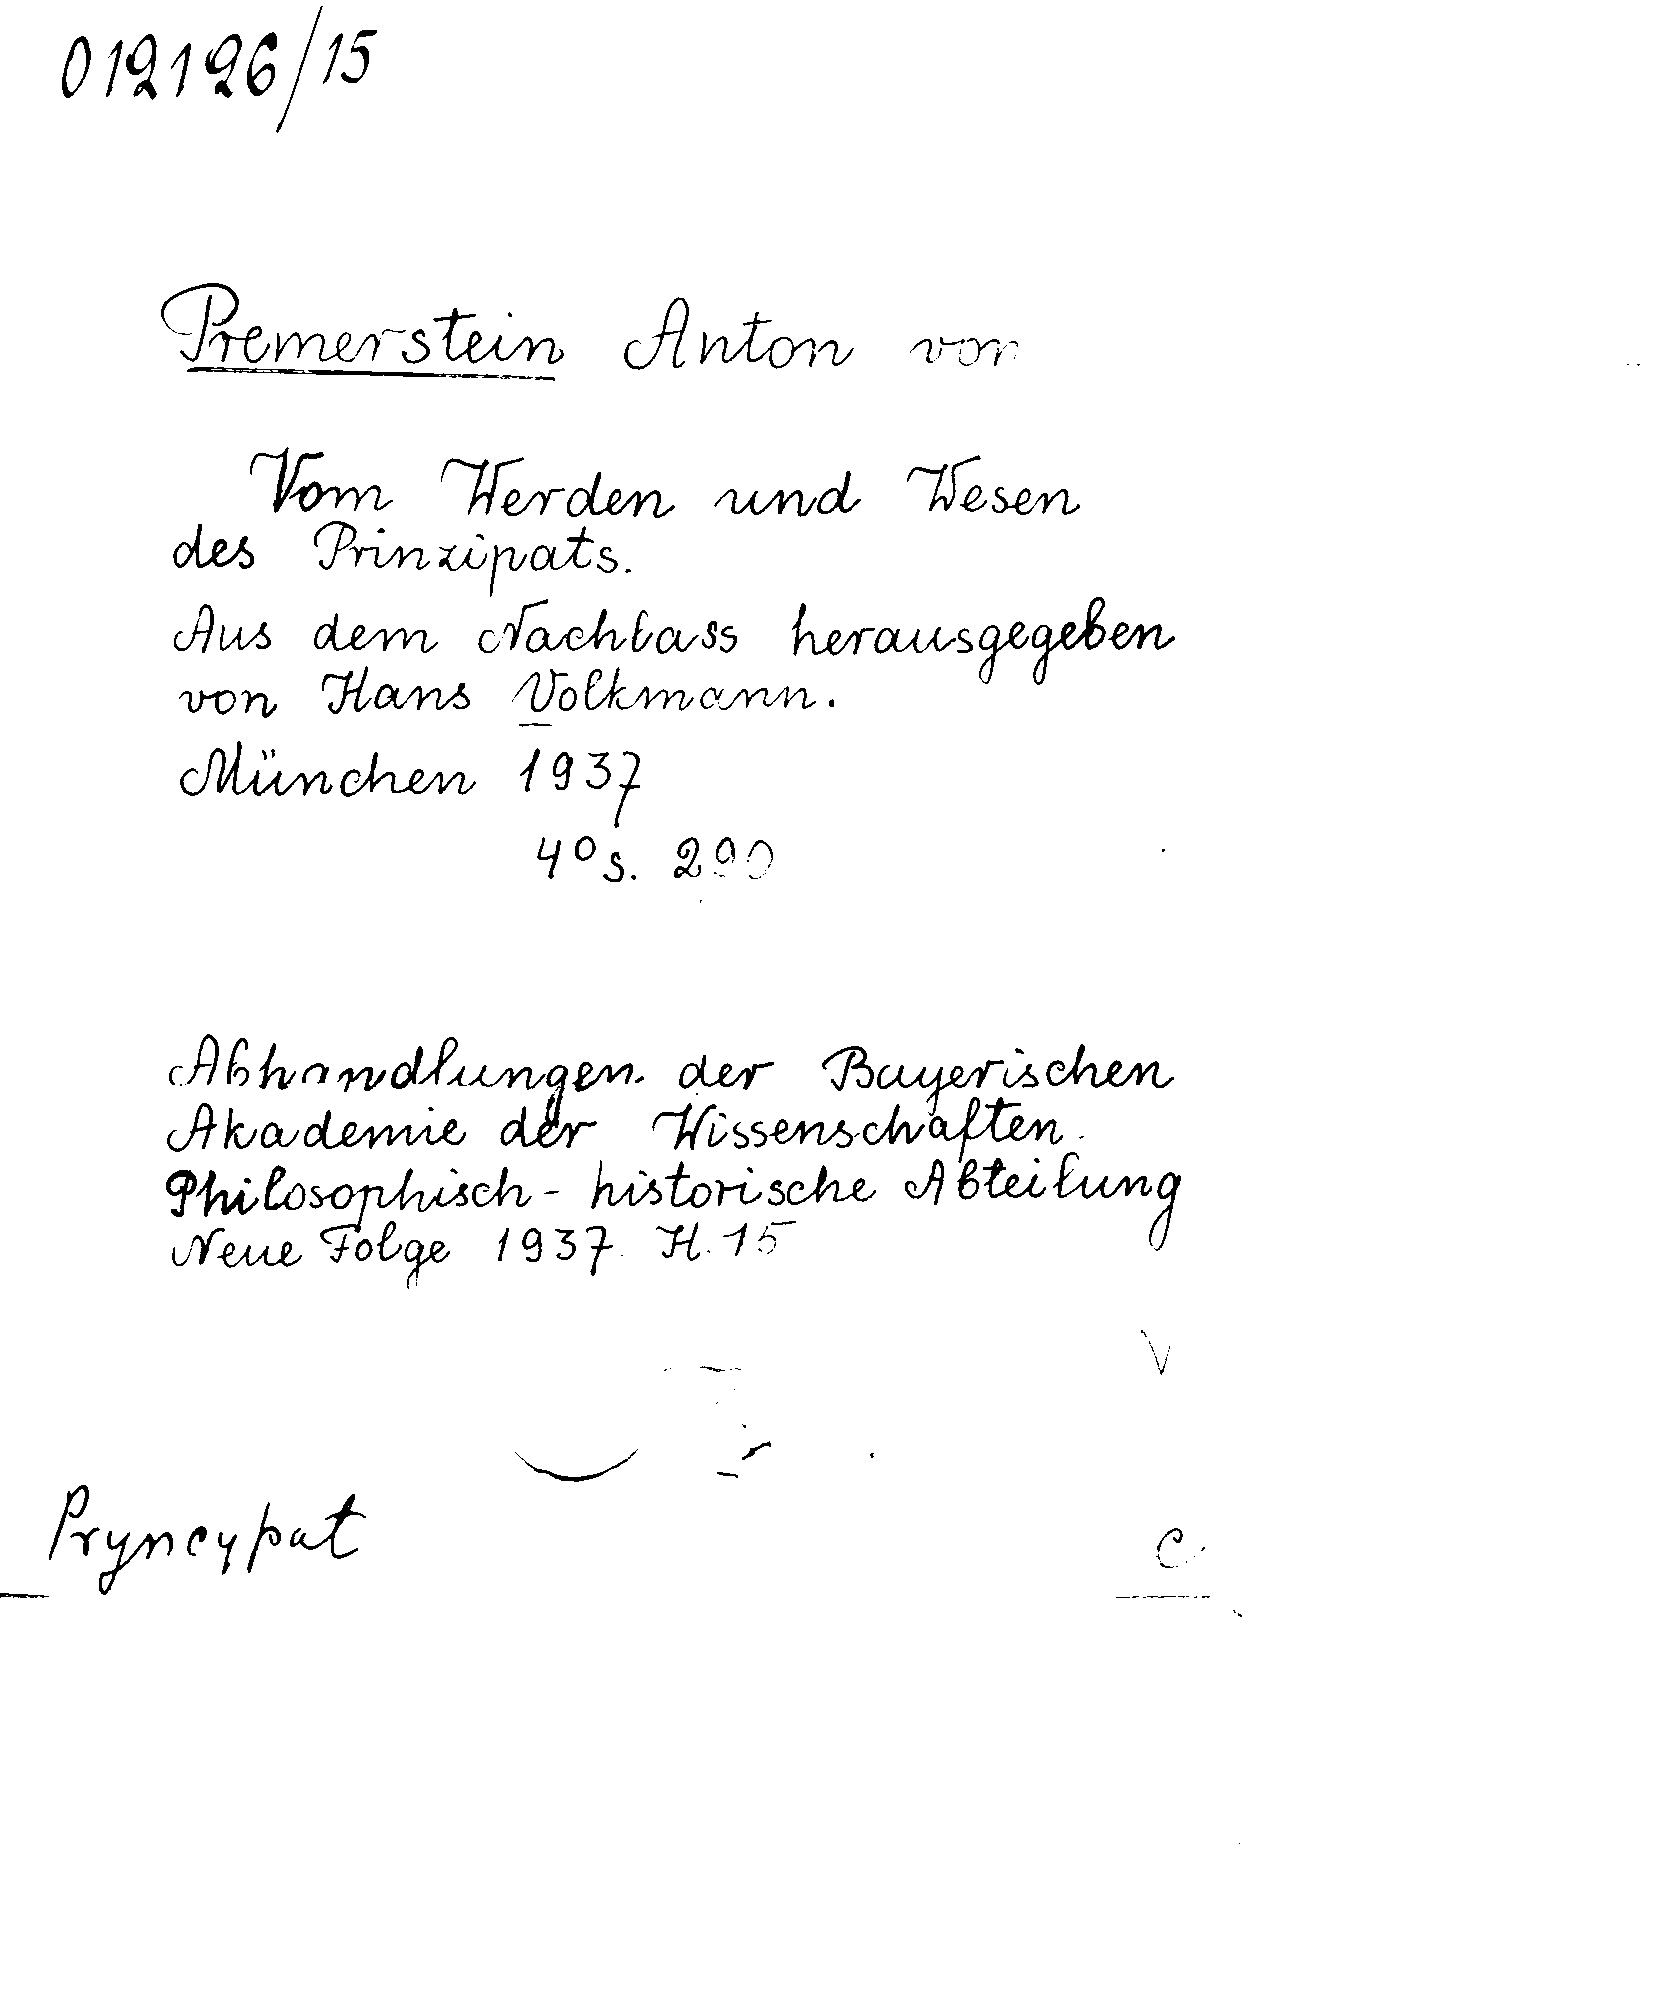 012126/15
Premerstein Anton von
Vom Werden und Wesen
des Prinzipats.
Aus dem Nachlass herausgegeben
von Hans Volkmann.
München 1937
4° s. 290
Abhandlungen der Bayerischen
Akademie der Wissenschaften.
Philosophisch-historische Abteilung
Neue Folge 1937. H. 15
Pryncypat
C